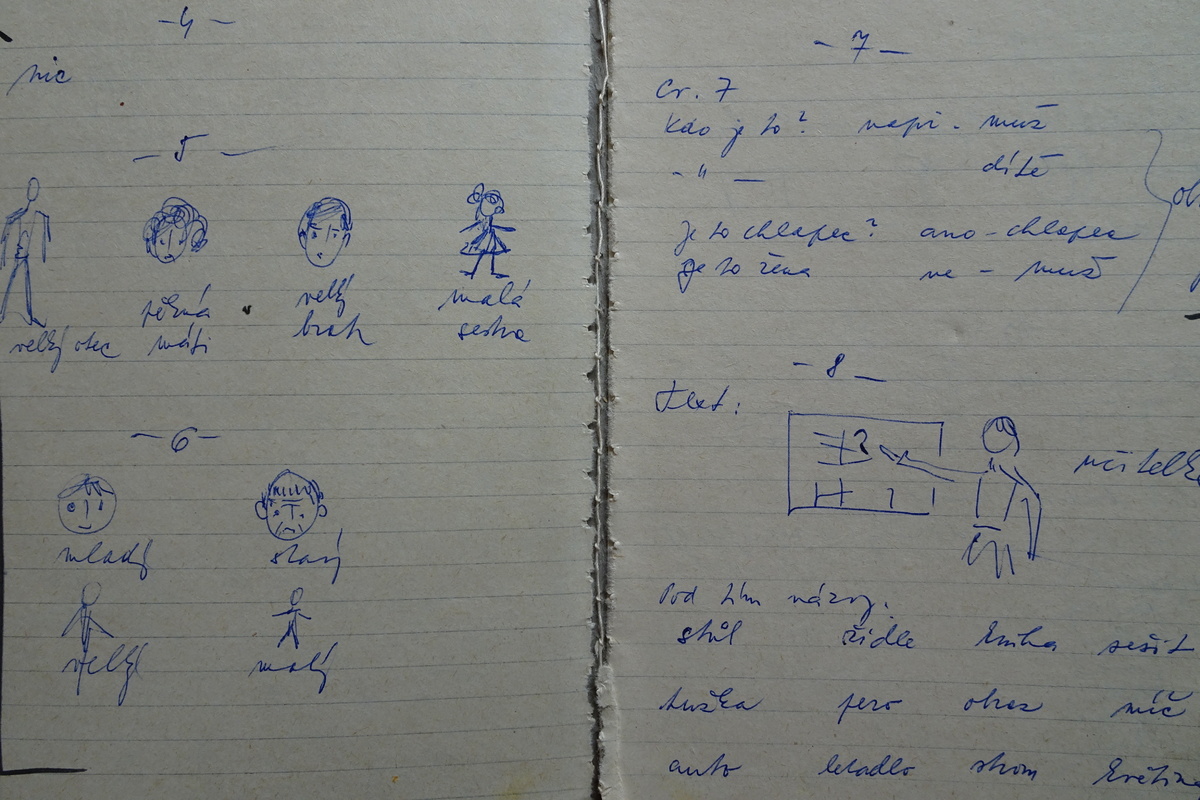 - 4 -
nic
- 5 -
velký otec
pěkná máti
velký brat
malá sestra
- 6 -
mladý starý
velký malý
- 7 -
Cv. 7
Kdo je to? např. - muž
- " - dítě
je to chlapec? ano - chlapec
Je to žena ne - muž
- 8 -
Text:
učitelka
Pod tím názvy.
stůl židle kniha sešit
tužka pero obraz míč
auto letadlo strom květina